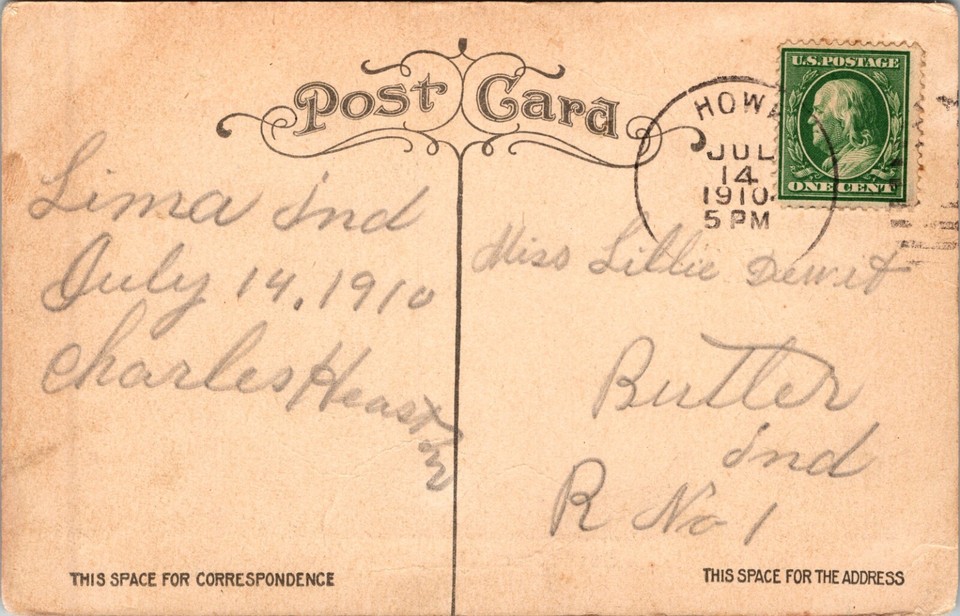 Post Card
U.S. POSTAGE
ONE CENT
HOW
JUL
14
1910
5 PM
Lima Ind
July 14, 1910
Charles
Miss Lillie Dewit
Butler
Ind
R No 1
THIS SPACE FOR CORRESPONDENCE
THIS SPACE FOR THE ADDRESS